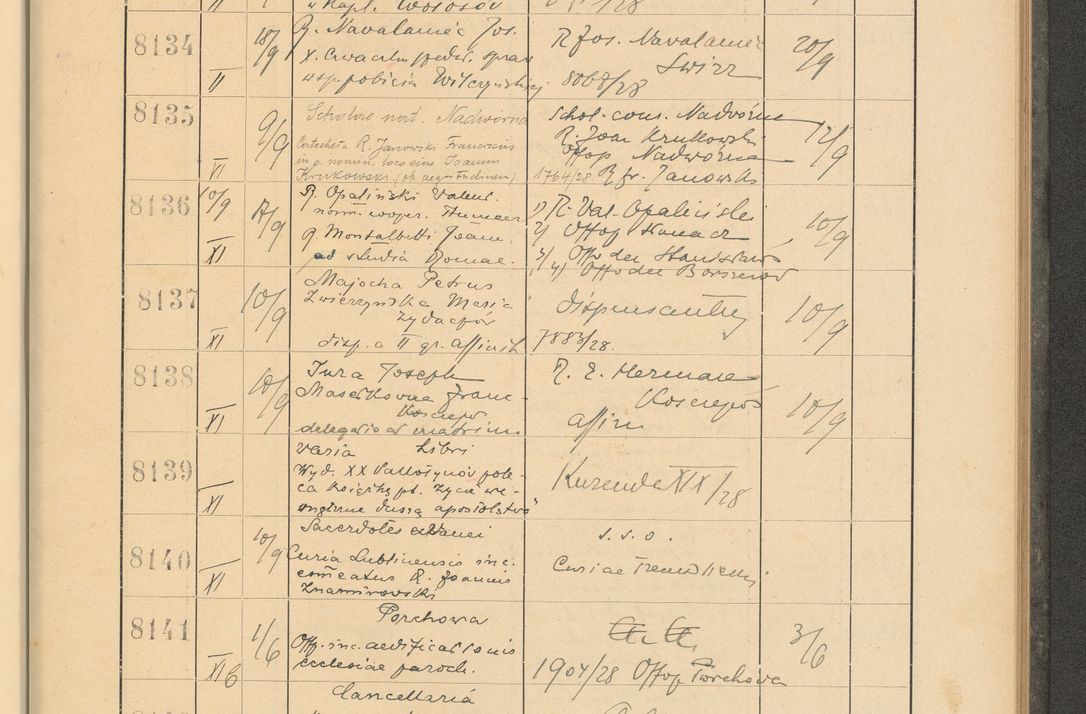 8134
II
10/9
R. Navalaniec Jos.
wsp pobicia Wilczyńskiej
R Jos. Navalaniec
Swirz
8068/28
20/9
8135
VI
9/9
Scholae nort. Nadwórna
Catecheta R. Janowski Franciscus
in o. nomin. loco eius Joannis
Krukowski (ob aegritudinem).
Schol. cons. Nadwórna
R. Joan Krukowski
Offop Nadwórna
1764/28. R fr. Janowski
12/9
8136
10/9
XI
17/9
R. Opaliński Valent.
nom. cooper. Tłumacz
R. Montalbetti Joann.
ad studia Romae.
1) R. Val. Opaliński
2) Offop Tłumacz
3) Off dec Stanisławów
4) Off dec Borszczów
10/9
8137
XI
10/9
Majocha Petrus
Zwierzyńska Maria
Żydaczów
disp. a II gr. affinit
dispensantur
7883/28.
10/9
8138
XI
10/9
Jura Joseph
Masełkowna Franc-
Kosciejów
delegatio ad matrim
R. E. Herman
Kosciejów
affirm
10/9
8139
XI
Varia Libri
Wyd. XX Pallotynów pole-
ca książkę pt. Życie we-
wnętrzne duszą apostolstwa"
Kurenda XIX/28
8140
XI
10/9
Sacerdotes extranei
Curia Lublinensis inc.
commeatus R. Joannis
Znamirowski
s. s. o.
Curiae
8141
XI 6
1/6
Porchowa
Off. inc. aedificationis
ecclesiae paroch.
1904/28 Offop Porchowa
3/6
Cancellaria